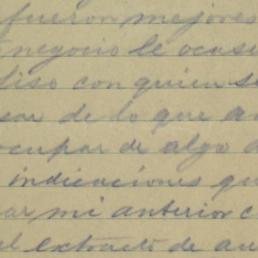 fueron mejores
negocio le ocas
con quien s
de lo que a
ocupar de algo
indicaciones qu
mi anterior c
el extracto de au